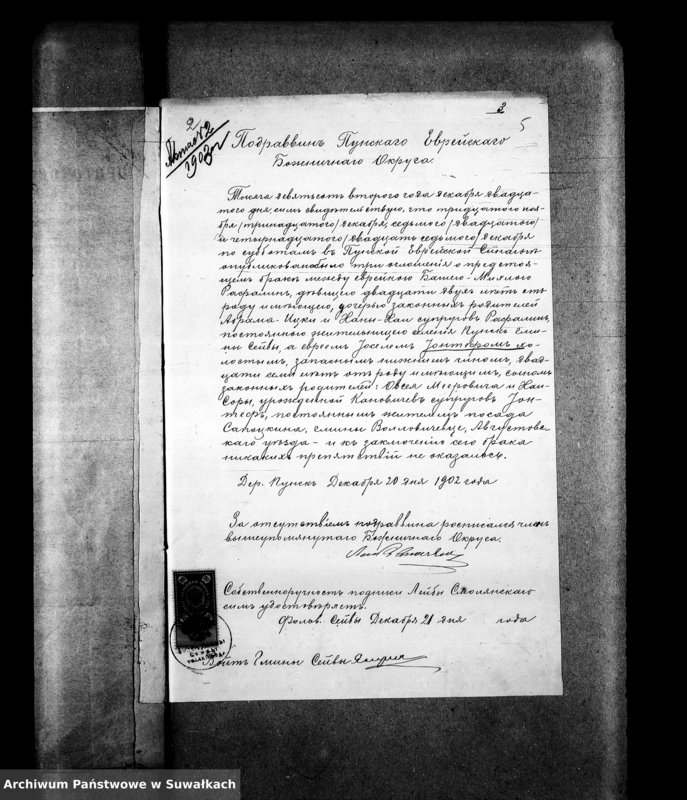 2
5
2
Актъ № 2
1903 г
Подраввинъ Пунскаго Еврейскаго
Божничнаго Округа.
Тысяча девятьсотъ второго года декабря двадца-
того дня, симъ свидѣтельствую, что тридцатого ноя-
бря /тринадцатого/ декабря, седьмого /двадцатого/
и четырнадцатого /двадцать седьмого/ декабря
по субботамъ въ Пунской Еврейской Синагогѣ
опубликовано было три оглашенія о предстоя-
щемъ бракѣ между еврейкою Башею-Миялою
Расфалинъ, дѣвицею двадцати двухъ лѣтъ отъ
роду имѣющею, дочерью законныхъ родителей
Абрама-Ицки и Ханы-Хаи супруговъ Расфалинъ,
постоянною жительницею селенія Пунскъ гми-
ны Сейвы, а евреемъ Іоселемъ Іонтефомъ хо-
лостымъ, запаснымъ нижнимъ чиномъ, двад-
цати семи лѣтъ отъ роду имѣющимъ, сыномъ
законныхъ родителей: Овсея Мееровича и Хаи-
Соры, урожденной Кановичевъ супруговъ Іон-
тефъ, постояннымъ жителемъ посада
Сапоцкина, гмины Волловичевце, Августовс-
каго уѣзда - и къ заключенію сего брака
никакихъ препятствій не оказалось.
Дер. Пунскъ Декабря 20 дня 1902 года
За отсутствіемъ подраввина росписался членъ
вышеупомянутаго Божничнаго Округа.
Собственноручность подписи Лейбы Смолянскаго
симъ удостовѣряетъ.
Фольв. Сейвы Декабря 21 дня года
Войтъ Гмины Сейвы
Archiwum Państwowe w Suwałkach